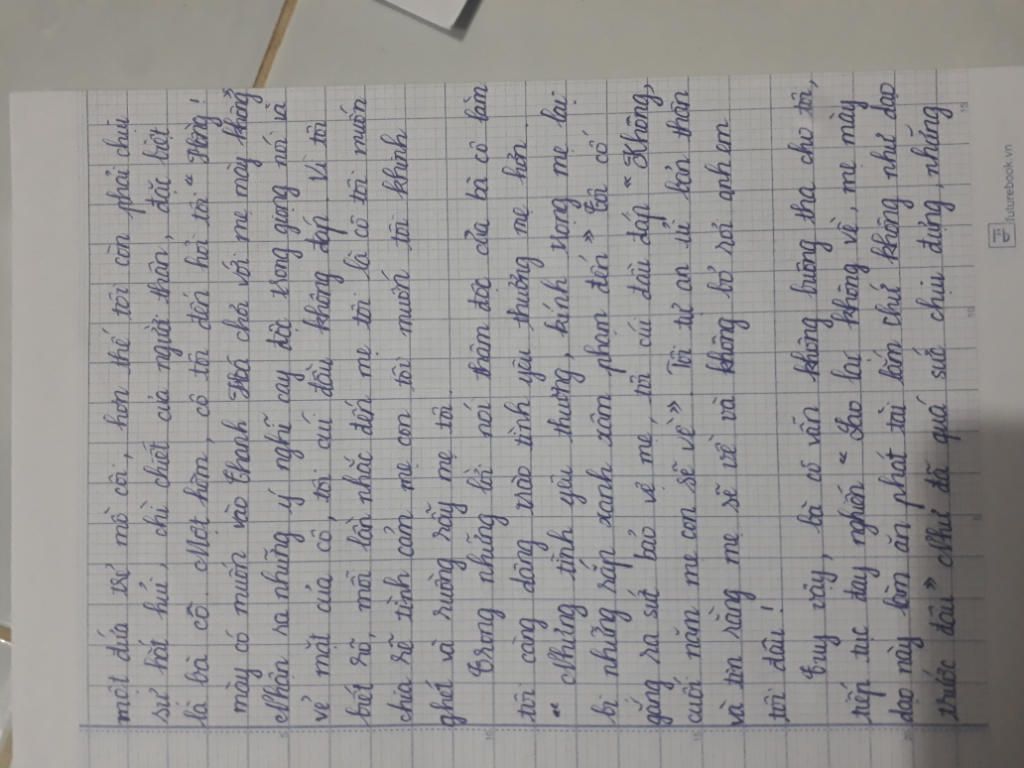 một đứa trẻ mồ côi, hơn thế tôi còn phải chịu
sự hắt hủi, chì chốt của người thân, đặt biệt
là bà cô. Một hôm, cô tôi đến hỏi tôi "Hồng!
mày có muốn vào Thanh Hoá chơi với mẹ mày không"
Nhận ra những ý nghĩ cay độc trong giọng nói và
vẻ mặt của cô, tôi cúi đầu không đáp. Vì tôi
biết rõ, mỗi lần nhắc đến mẹ tôi là cô tôi muốn
chia rẽ tình cảm mẹ con tôi muốn tôi khinh
ghét và ruồng rẫy mẹ tôi.
Trong những lời nói thâm độc của bà cô làm
tôi càng dâng trào tình yêu thương mẹ hơn
" Nhưng tình yêu thương, kính trọng mẹ lại
bị những rắp xanh xâm phạm đến" Tôi cố
gắng ra sức bảo vệ mẹ, tôi cúi đầu đáp "Không,
cuối năm mẹ con sẽ về" Tôi tự an ủi bản thân
và tin rằng mẹ sẽ về và không bỏ rơi anh em
tôi đâu!
Tuy vậy, bà cô vẫn không buông tha cho tôi,
tiếp tục day nghiến "Sao lại không về, mẹ mày
dạo này làm ăn phát tài lắm chứ không như dạo
trước đâu" Như đã quá sức chịu đựng, những
futurebook.vn